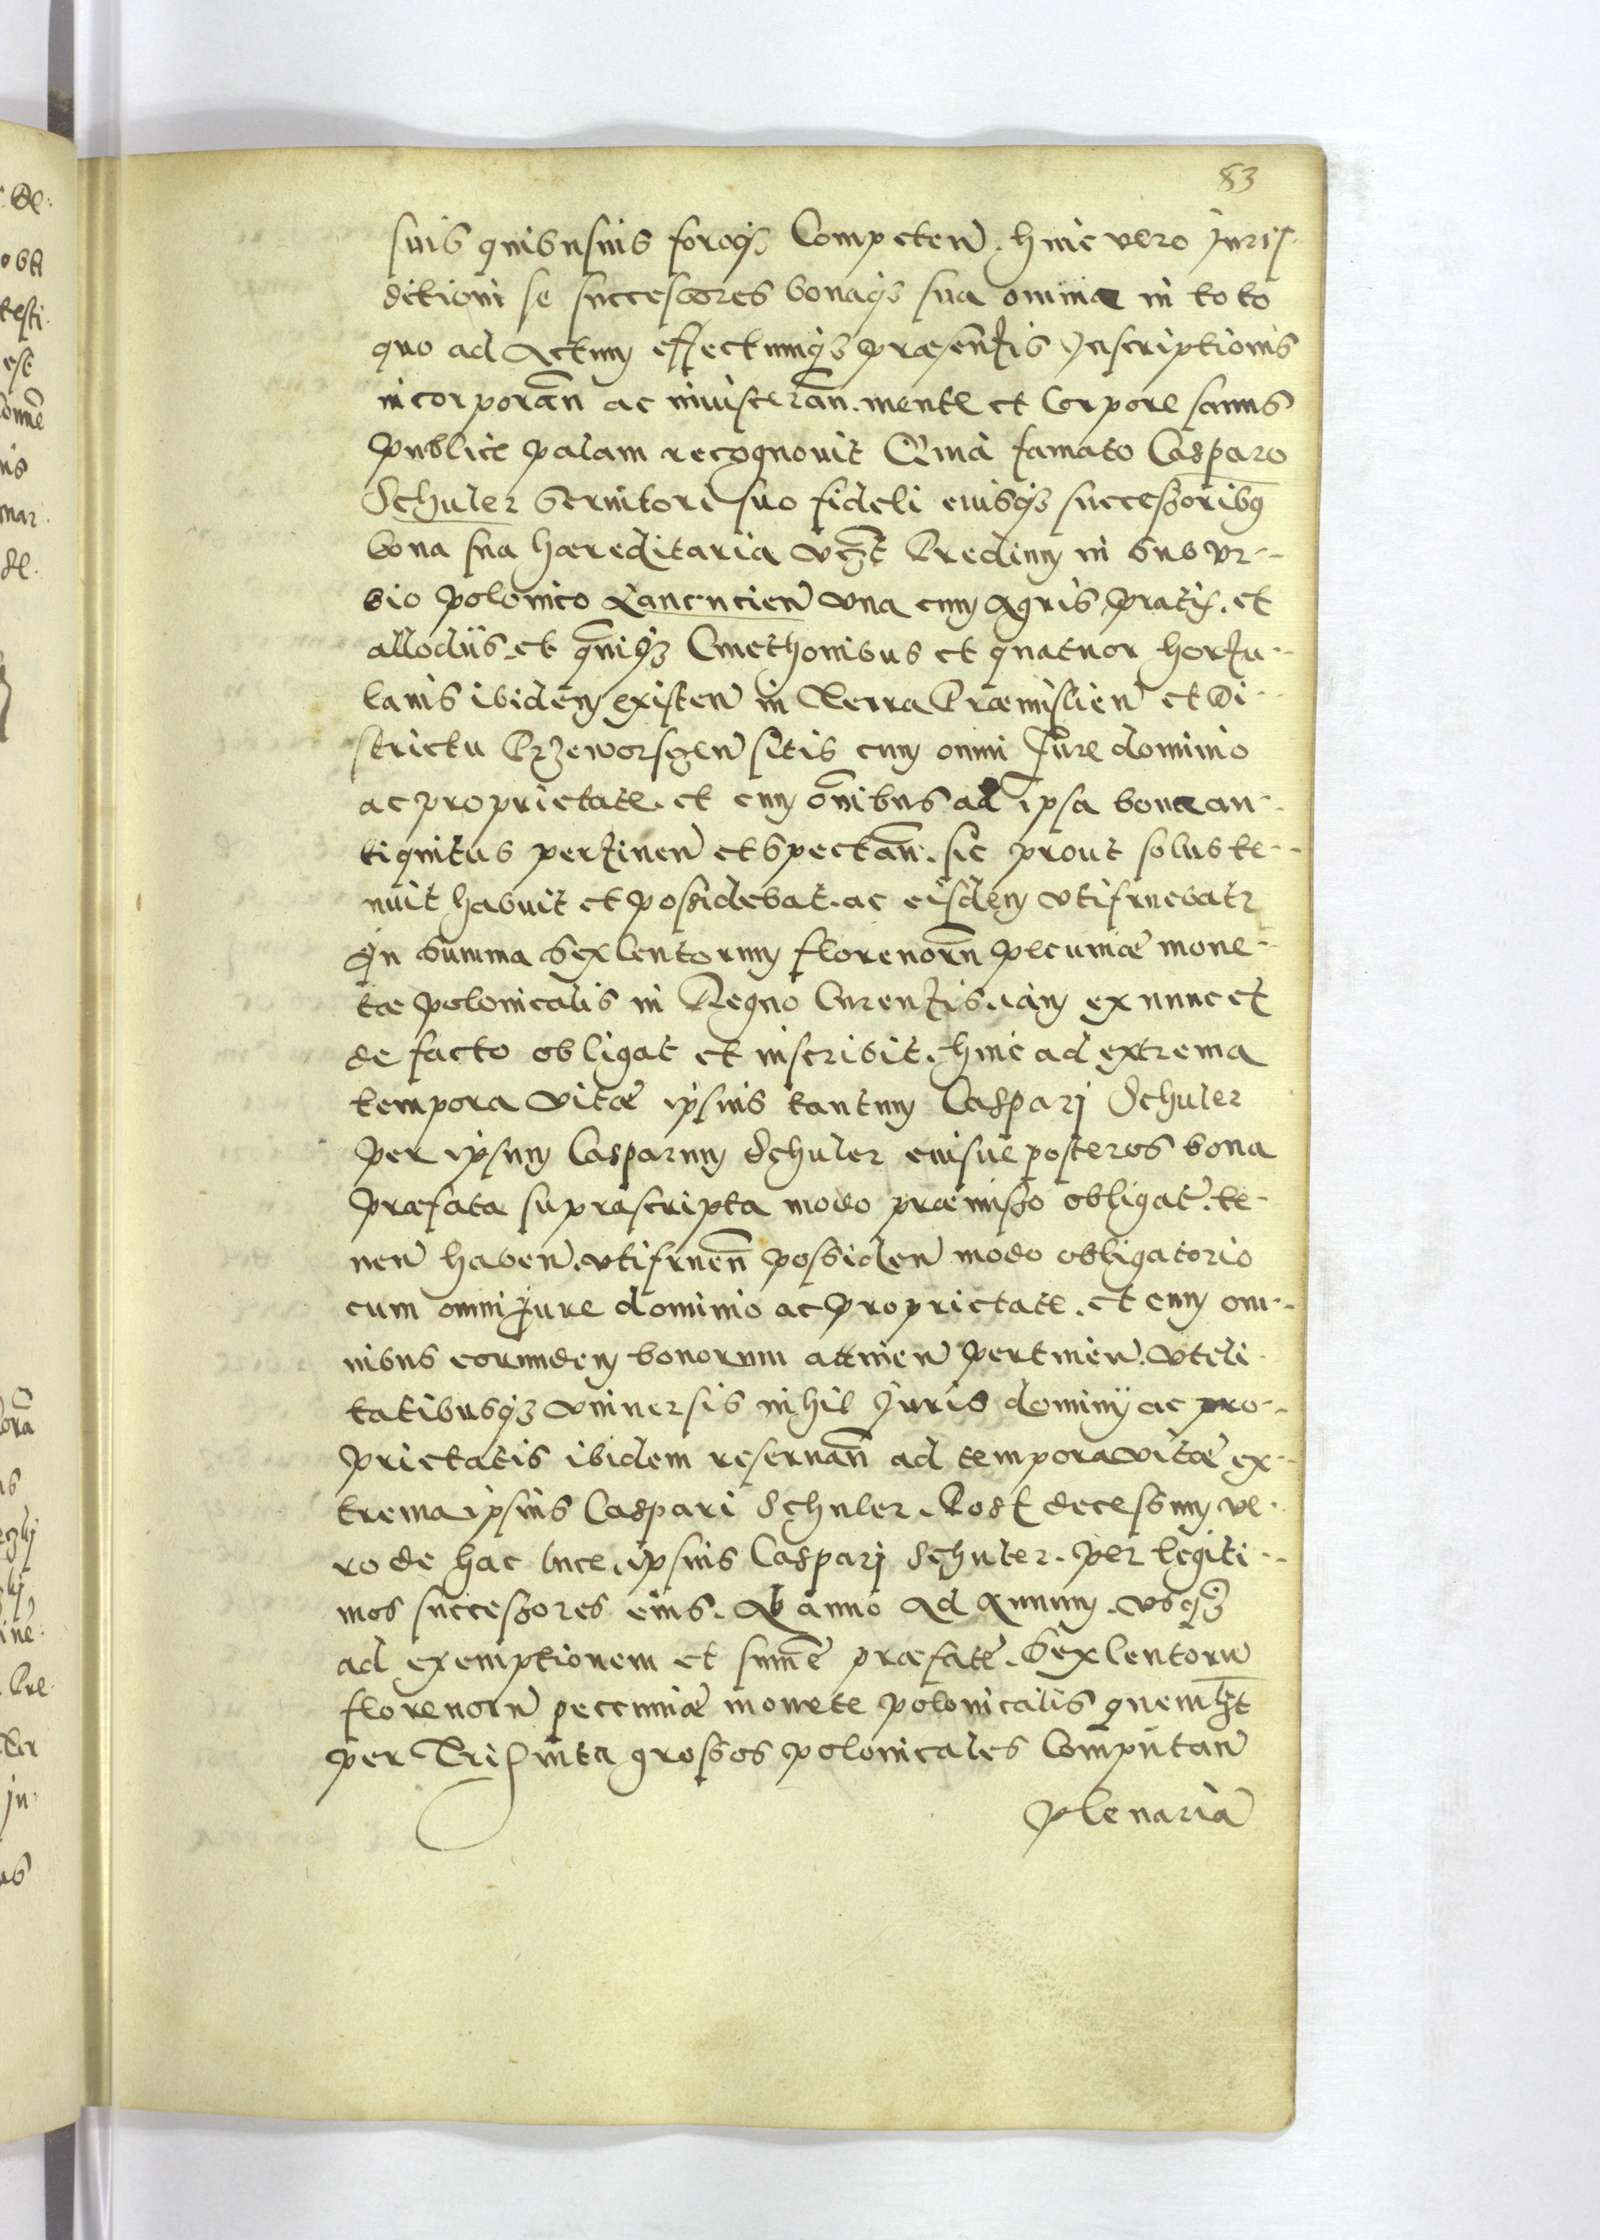 83
suis quibusuis foroq₃ Competen̄. huic vero Juris
ditioni se successores bonaq₃ sua omnia in toto
quo ad Actum effectumq₃ præsentis Inscriptionis
incorporan̄ ac inuisceran̄. mente et Corpore sanus
publice palam recognouit Quia famato Casparo
Schuler Seruitori suo fideli eiusq₃ successoribꝯ
bona sua hæreditaria vz̄t Predium in Subur-
bio polonico Lancucien̄ vna cum Agris, Pratis. et
allodiis. et quīq₃ Cmethonibus et quatuor hortu-
lanis ibidem existen̄ in Terra Præmislien̄ et Di
strictu Przeworsgen̄ sitis cum omni Jure dominio
ac proprietate. et cum om̄ibus ad ipsa bona an-
tiquitus pertinen̄ et Spectan̄. sic prout solus te-
nuit habuit et possidebat. ac eisdem vtifruebatr
In Summa Sexlentorum florenorn̄ pecuniæ mone-
tæ polonicalis in Regno Curentis. iam ex nunc et
de facto obligat et inscribit. hinc ad extrema
tempora vitæ ipsius tantum Casparj Schuler
Per ipsum Casparum Schuler eiusue posteros bona
Præfata suprascripta modo præmisso obligat̄. te-
nen̄ haben̄. vtifruen̄ possiden̄ modo obligatorio
cum omni Jure dominio ac Proprietate. et cum om-
nibus eorumdem bonorum attinen̄ Pertinen̄. vteli
tatibusq₃ vniuersis nihil Juris dominij ac pro-
prietatis ibidem reseruan̄ ad tempora vitæ ex-
trema ipsius Caspari Schuler. Post decessum ve-
ro de hac luce, ipsius Casparj Schuler. Per legiti-
mos successores eius. Ab anno Ad Annum. vsq₃
ad exemptionem et sum̄e præfate. Sexlentoru
florenorn̄ pecuniæ monete polonicalis quemlz̄t
per Triginta grossos polonicales Computan̄
Plenaria